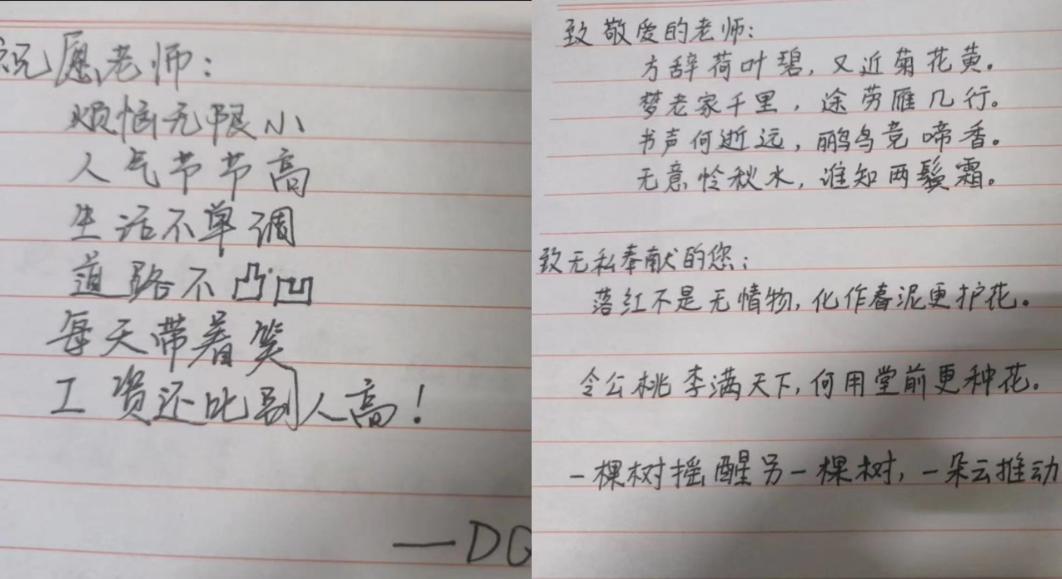 祝愿老师:
烦恼无限小
人气节节高
生活不单调
道路不凸凹
每天带着笑
工资还比别人高!
—DG
致敬爱的老师:
方辞荷叶碧,又近菊花黄。
梦老家千里,途劳雁几行。
书声何逝远,鹏鸟竞啼香。
无意怜秋水,谁知两鬓霜。
致无私奉献的您:
落红不是无情物,化作春泥更护花。
令公桃李满天下,何用堂前更种花。
一棵树摇醒另一棵树,一朵云推动